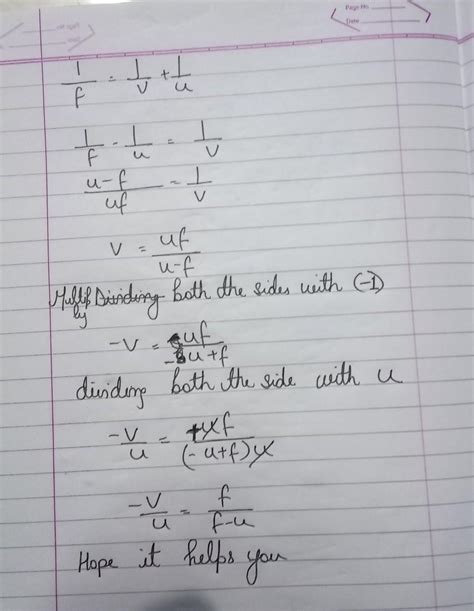 Page No.
Date
1/f = 1/v + 1/u
1/f - 1/u = 1/v
u-f/uf = 1/v
v = uf/u-f
Multip Dividing both the sides with (-1)
by
-v = uf/-u+f
dividing both the side with u
-v/u = +uf/(-u+f)u
-v/u = f/f-u
Hope it helps you